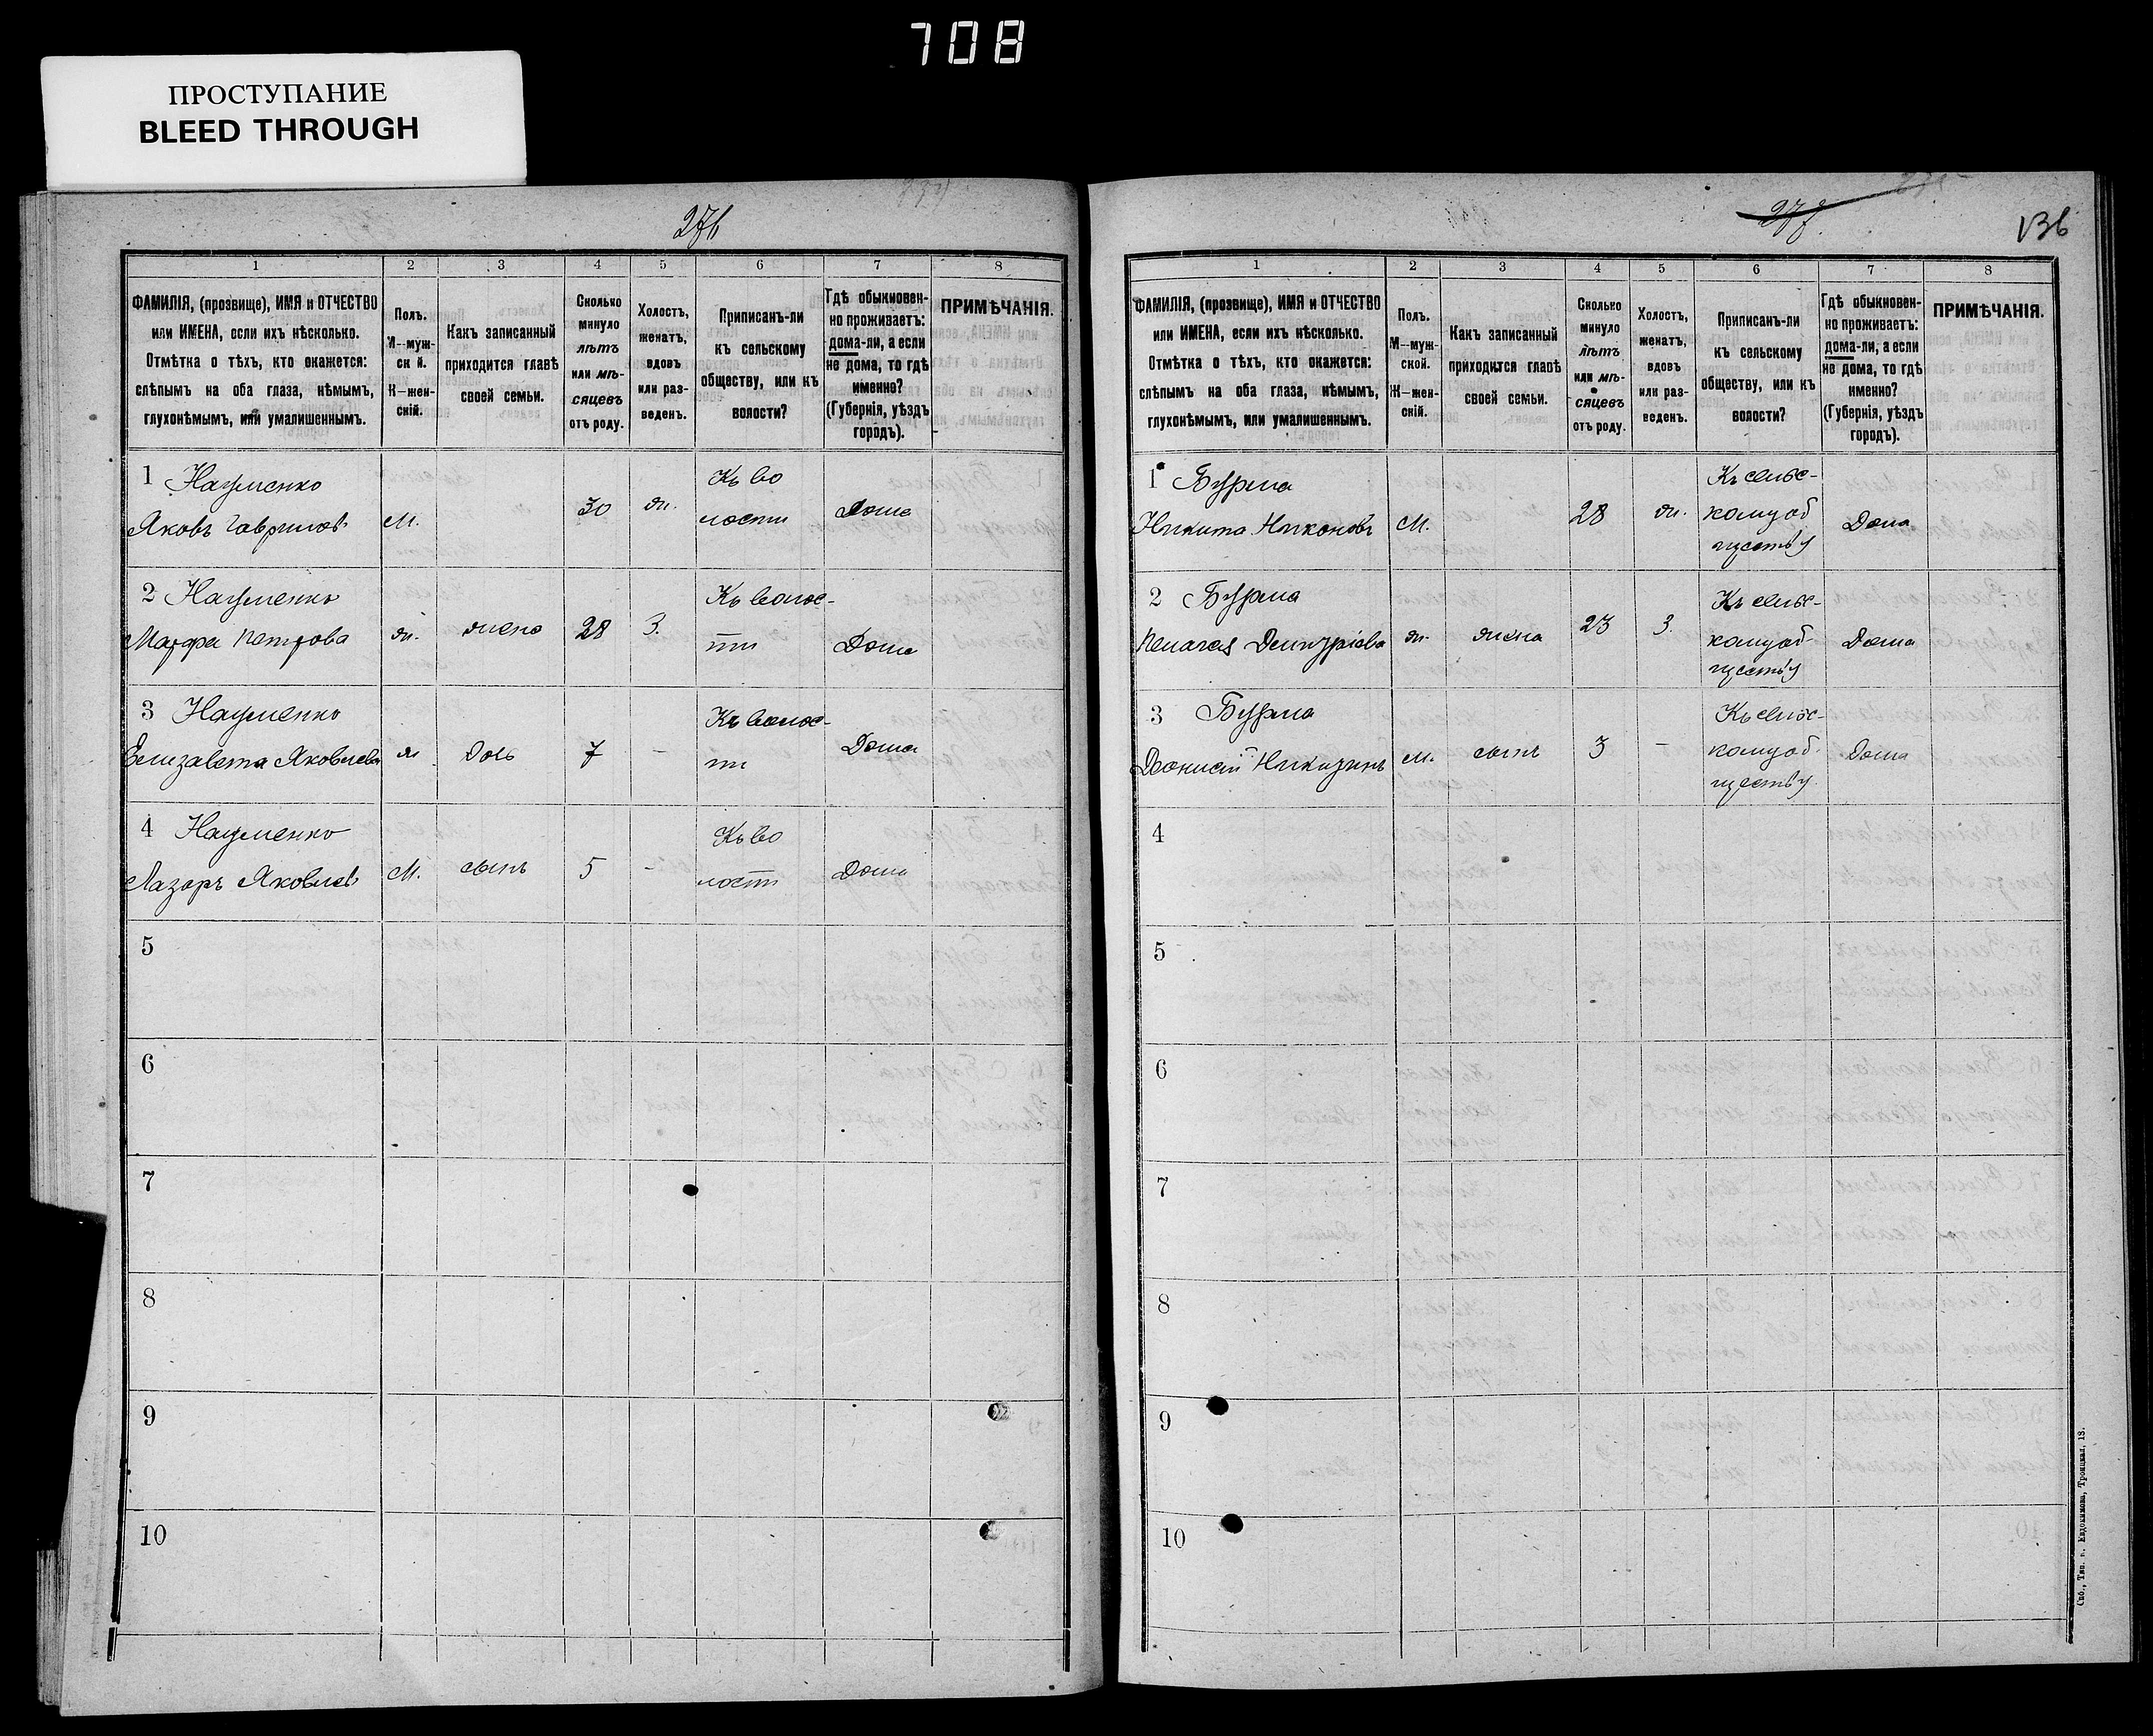 708
ПРОСТУПАНИЕ
BLEED THROUGH
276
1 2 3 4 5 6 7 8
ФАМИЛІЯ, (прозвище), ИМЯ и ОТЧЕСТВО
или ИМЕНА, если ихъ нѣсколько.
Отмѣтка о тѣхъ, кто окажется:
слѣпымъ на оба глаза, нѣмымъ,
глухонѣмымъ, или умалишеннымъ.
Полъ.
М—муж-
ской.
Ж—жен-
скій.
Какъ записанный
приходится главѣ
своей семьи.
Сколько
минуло
лѣтъ
или мѣ-
сяцевъ
отъ роду.
Холостъ,
женатъ,
вдовъ
или раз-
веденъ.
Приписанъ-ли
къ сельскому
обществу, или къ
волости?
Гдѣ обыкновен-
но проживаетъ:
дома-ли, а если
не дома, то гдѣ
именно?
(Губернія, уѣздъ
городъ).
ПРИМѢЧАНІЯ.
1 Науменко
Яковъ Гавриловъ М. 30 ж. Къ во
лости Дома
2 Науменко
Марфа Петрова ж. жена 28 З. Къ волос-
ти Дома
3 Науменко
Елизавета Яковлева ж дочь 7 - Къ волос-
ти Дома
4 Науменко
Лазарь Яковлевъ М. сынъ 5 - Къ во
лости Дома
5
6
7
8
9
10
277
136
1 2 3 4 5 6 7 8
ФАМИЛІЯ, (прозвище), ИМЯ и ОТЧЕСТВО
или ИМЕНА, если ихъ нѣсколько.
Отмѣтка о тѣхъ, кто окажется:
слѣпымъ на оба глаза, нѣмымъ,
глухонѣмымъ, или умалишеннымъ.
Полъ.
М—муж-
ской.
Ж—жен-
скій.
Какъ записанный
приходится главѣ
своей семьи.
Сколько
минуло
лѣтъ
или мѣ-
сяцевъ
отъ роду.
Холостъ,
женатъ,
вдовъ
или раз-
веденъ.
Приписанъ-ли
къ сельскому
обществу, или къ
волости?
Гдѣ обыкновен-
но проживаетъ:
дома-ли, а если
не дома, то гдѣ
именно?
(Губернія, уѣздъ
городъ).
ПРИМѢЧАНІЯ.
1 Бурма
Никита Никоновъ М. 28 ж. Къ сельс-
кому об
ществу Дома
2 Бурма
Пелагея Димтріева ж. жена 23 З. Къ сельс-
кому об-
ществу Дома
3 Бурма
Діонисій Никитинъ М. сынъ 3 - Къ сельс-
кому об-
ществу Дома
4
5
6
7
8
9
10
Спб., Тип. в. Евдокимова, Троицкая, 18.